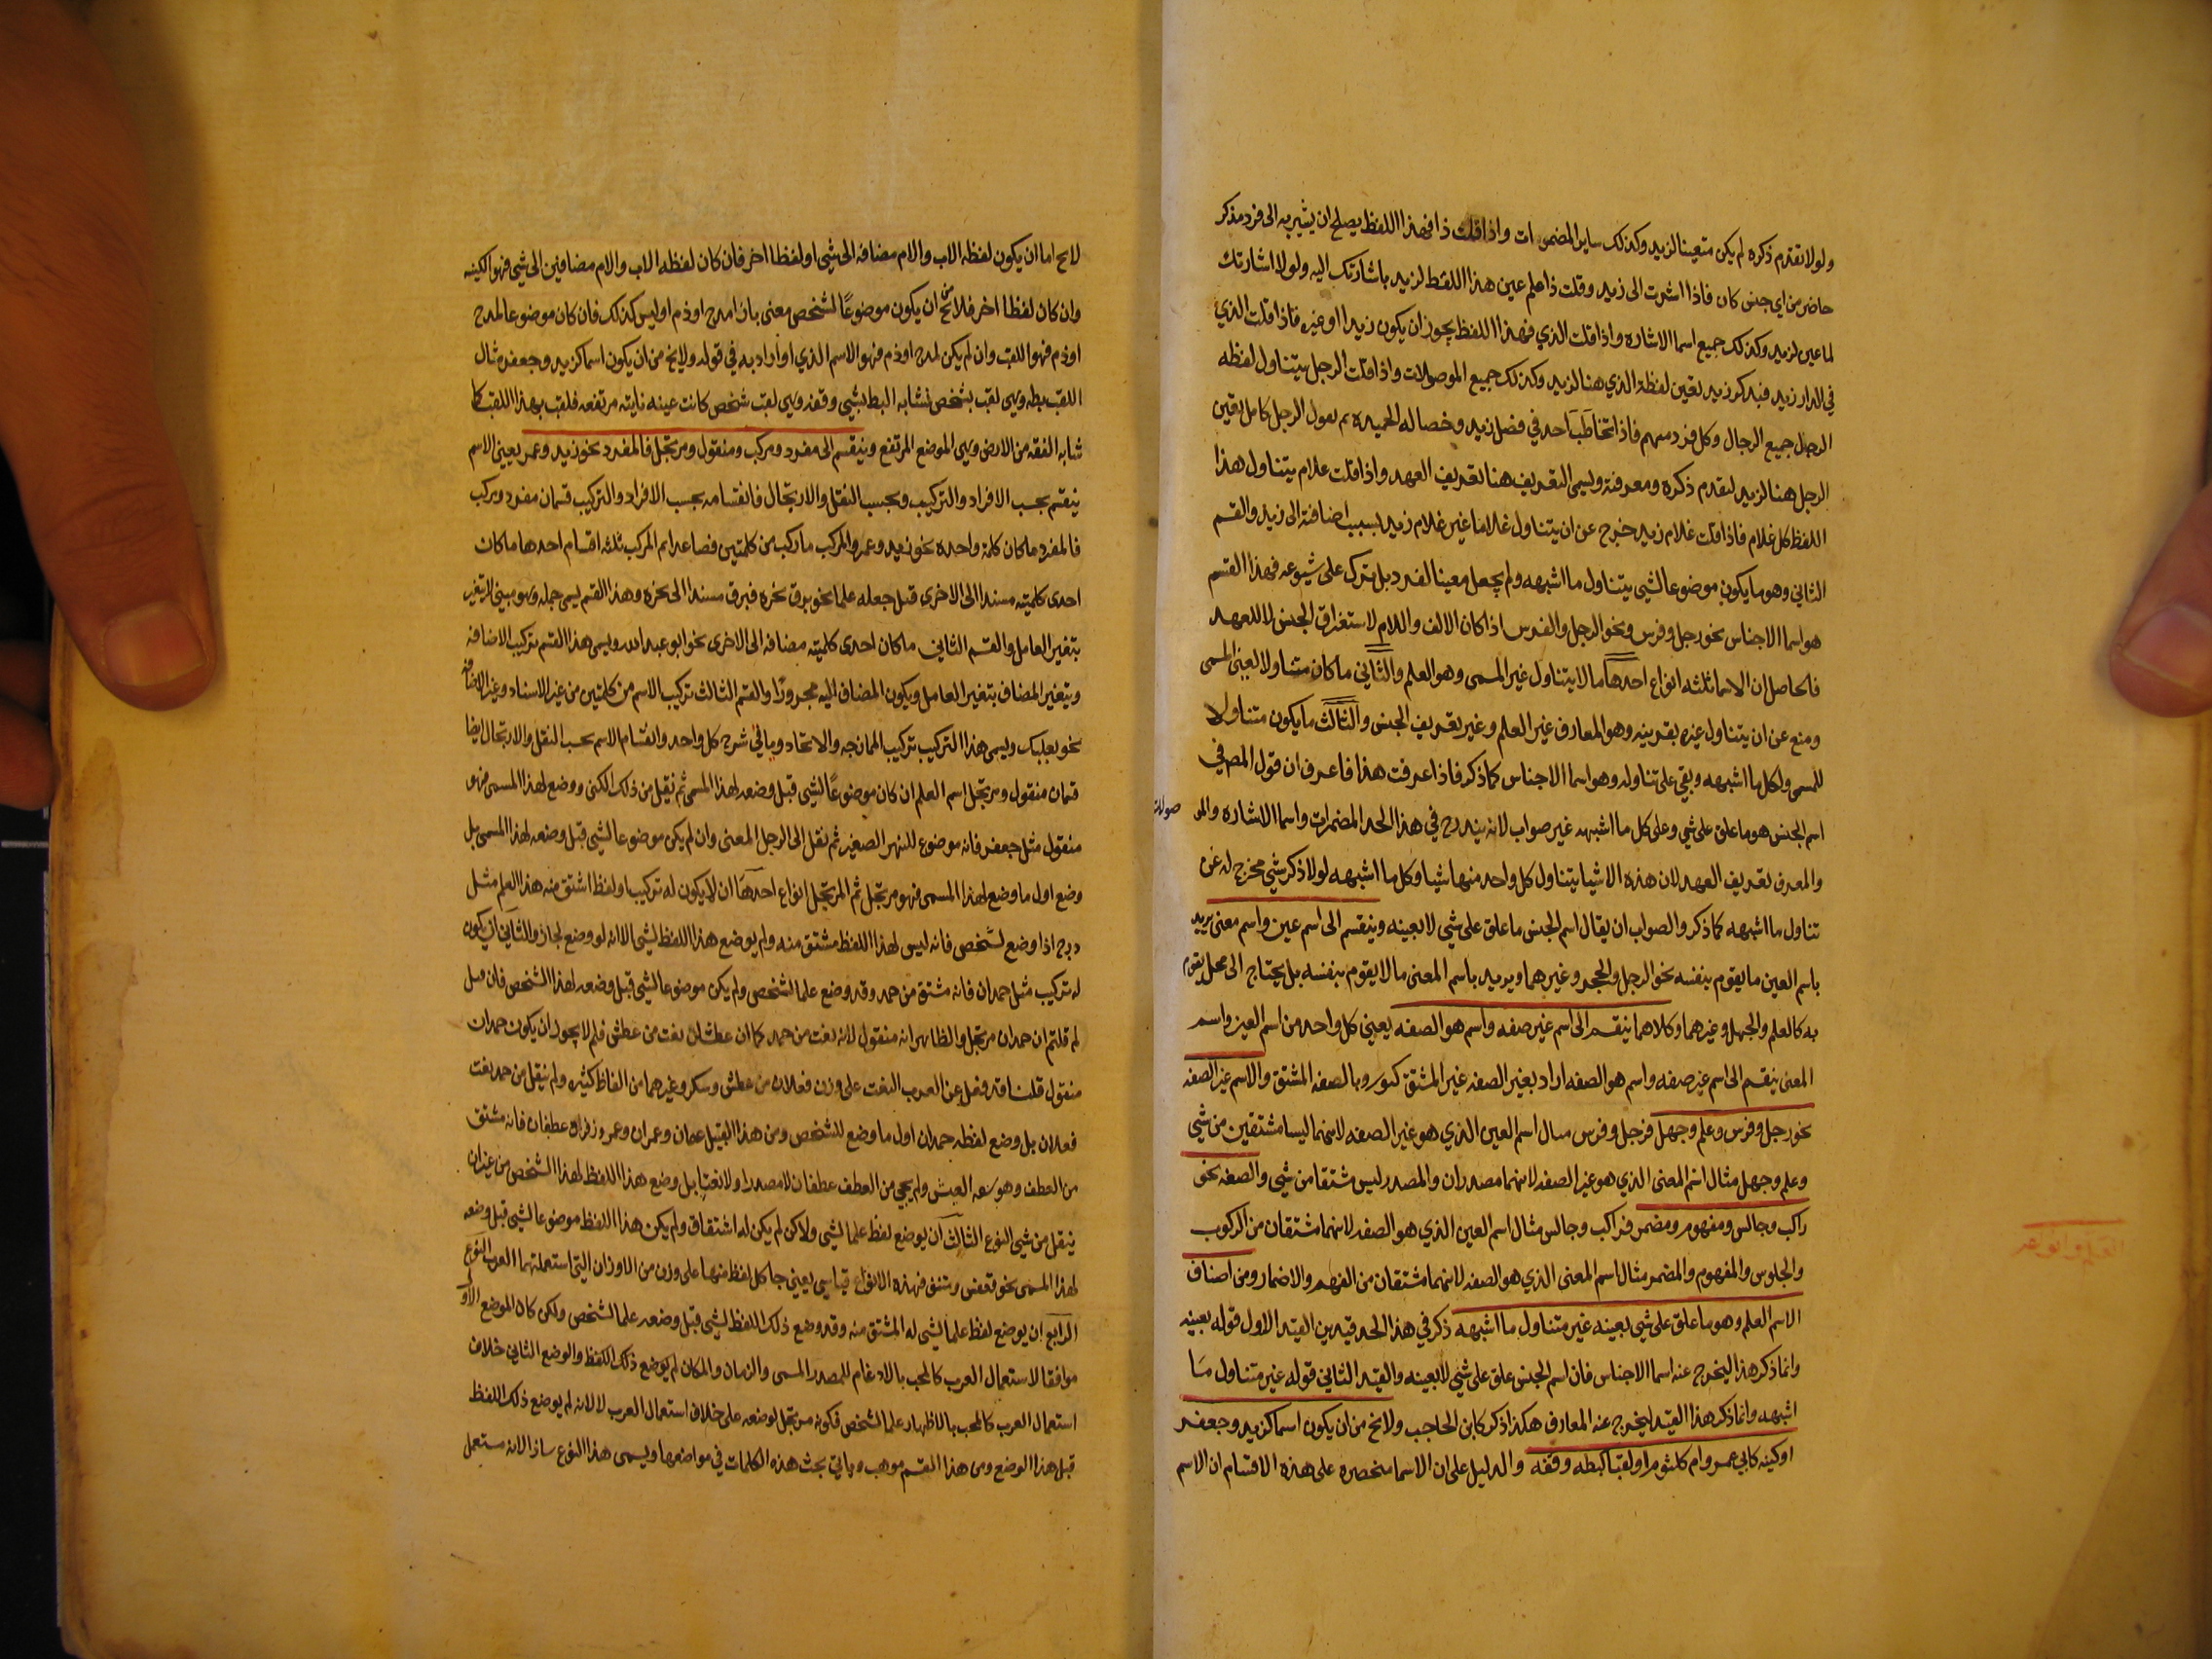 ولولا تقدم ذكره لم يكن متعينا لزيد وكذلك ساير المضمرات واذا قلت ذا فهذا اللفظ يصلح ان يشير به الى فرد مذكر
حاضر من اي جنس كان فاذا اشرت الى زيد وقلت ذا علم عين هذا اللفظ لزيد باشارتك اليه ولولا اشارتك
لما عين لزيد وكذلك جميع اسما الاشاره واذا قلت الذي فهذا اللفظ يجوز ان يكون زيدا او غيره فاذا قلت الذي
في الدار زيد فبذكر زيد تعين لفظة الذي هنا لزيد وكذلك جميع الموصولات واذا قلت الرجل يتناول لفظه
الرجل جميع الرجال وكل فرد منهم فاذا تخاطب احد في فضل زيد وخصاله الحميده ثم تقول الرجل كامل تعين
الرجل هنا لزيد لتقدم ذكره ومعرفته ويسمى التعريف هنا تعريف العهد واذا قلت غلام يتناول هذا
اللفظ كل غلام فاذا قلت غلام زيد خرج عن ان يتناول غلاما غير غلام زيد بسبب اضافته الى زيد والقسم
الثاني وهو ما يكون موضوعا لشي يتناول ما اشبهه ولم يجعل معينا لفرد بل يترك على شيوعه فهذا القسم
هو اسما الاجناس نحو رجل وفرس ونحو الرجل والفرس اذا كان الالف واللام لاستغراق الجنس لا للعهد
فالحاصل ان الاسما ثلثه انواع احدها ما لا يتناول غير المسمى وهو العلم والثاني ما كان متناولا لغير المسمى
ومنع عن ان يتناول غيره بقرينه وهو المعارف غير العلم وغير تعريف الجنس والثالث ما يكون متناولا
للمسمى ولكل ما اشبهه وبقي على تناوله وهو اسما الاجناس كما ذكر فاذا عرفت هذا فاعرف ان قول المص في
اسم الجنس هو ما علق على شي وعلى كل ما اشبهه غير صواب لانه يندرج في هذا الحد المضمرات واسما الاشاره والموصولات
والمعرف تعريف العهد لان هذه الاشيا يتناول كل واحد منها شيا وكل ما اشبهه لولا ذكر شي مخرج له عن
تناول ما اشبهه كما ذكر والصواب ان يقال اسم الجنس ما علق على شي لا بعينه وينقسم الى اسم عين واسم معنى يريد
باسم العين ما يقوم بنفسه نحو الرجل والحجر وغيرهما ويريد باسم المعنى ما لا يقوم بنفسه بل يحتاج الى محل يقوم
به كالعلم والجهل وغيرهما وكلاهما ينقسم الى اسم غير صفه واسم هو الصفه يعني كل واحد من اسم العين واسم
المعنى ينقسم الى اسم غير صفه واسم هو الصفه اراد بغير الصفه غير المشتق وبالصفه المشتق والاسم غير الصفه
نحو رجل وفرس وعلم وجهل فرجل وفرس مثال اسم العين الذي هو غير الصفه لانهما ليسا مشتقين من شي
وعلم وجهل مثال اسم المعنى الذي هو غير الصفه لانهما مصدران والمصدر ليس مشتقا من شي والصفه نحو
راكب وجالس ومفهوم ومضمر فراكب وجالس مثال اسم العين الذي هو الصفه لانهما مشتقان من الركوب
والجلوس والمفهوم والمضمر مثال اسم المعنى الذي هو الصفه لانهما مشتقان من الفهم والاضمار ومن اصناف
الاسم العلم وهو ما علق على شي بعينه غير متناول ما اشبهه ذكر في هذا الحد قيدين القيد الاول قوله بعينه
وانما ذكر هذا ليخرج عنه اسما الاجناس فان اسم الجنس علق على شي لا بعينه والقيد الثاني قوله غير متناول ما
اشبهه وانما ذكر هذا القيد ليخرج عنه المعارف هكذا ذكر كابن الحاجب ولا يخ من ان يكون اسما كزيد وجعفر
او كنيه كابي عمرو وام كلثوم او لقبا كبطه وقفه والدليل على ان الاسما منحصره على هذه الاقسام ان الاسم
لا يخ اما ان يكون لفظه الاب والام مضافه الى شي او لفظا اخر فان كان لفظه الاب والام مضافين الى شي فهو الكنيه
وان كان لفظا اخر فلا يخ من ان يكون موضوعا لشخص معنى بازا مدح او ذم او ليس كذلك فان كان موضوعا لمدح
او ذم فهو اللقب وان لم يكن لمدح او ذم فهو الاسم الذي اراد به في قوله ولا يخ من ان يكون اسما كزيد وجعفر مثال
اللقب بطه وهي لقب بشخص تشابه البط بشي وقفه وهي لقب شخص كانت عينه ناتيه مرتفعه فلقب بهذا اللقب كما
شابه القفه من الارض وهي الموضع المرتفع وينقسم الى مفرد ومركب ومنقول ومرتجل فالمفرد نحو زيد وعمرو يعني الاسم
ينقسم بحسب الافراد والتركيب وبحسب النقل والارتجال فانقسامه بحسب الافراد والتركيب قسمان مفرد ومركب
فالمفرد ما كان كلمة واحده نحو زيد وعمرو والمركب ما ركب من كلمتين فصاعدا ثم المركب ثلثه اقسام احدها ما كان
احدى كلمتيه مسندا الى الاخرى قبل جعله علما نحو برق نحره فبرق مسندا الى نحره وهذا القسم يسمى جمله وهو مبني لا يتغير
بتغير العامل والقسم الثاني ما كان احدى كلمتيه مضافه الى الاخرى نحو ابو عبد الله ويسمى هذا القسم تركيب الاضافه
ويتغير المضاف بتغير العامل ويكون المضاف اليه مجرورا والقسم الثالث تركيب الاسم من كلمتين من غير الاسناد وغير الاضافه
نحو بعلبك ويسمى هذا التركيب تركيب الممازجه والاتحاد وياتي شرح كل واحد واقسام الاسم بحسب النقل والارتجال ايضا
قسمان منقول ومرتجل اسم العلم ان كان موضوعا لشي قبل وضعه لهذا المسمى ثم نقل من ذلك ووضع لهذا المسمى فهو
منقول مثل جعفر فانه موضوع للنهر الصغير ثم نقل الى الرجل المعنى وان لم يكن موضوعا لشي قبل وضعه لهذا المسمى بل
وضع اول ما وضع لهذا المسمى فهو مرتجل ثم المرتجل انواع احدها ان لا يكون له تركيب او لفظ اشتق منه هذا العلم مثل
درج اذا وضع لشخص فانه ليس لهذا اللفظ مشتق منه ولم يوضع هذا اللفظ لشي الا انه لو وضع لجاز والثاني ان يكون
له تركيب مثل حمدان فانه مشتق من حمد وقد وضع علما لشخص ولم يكن موضوعا لشي قبل وضعه لهذا الشخص فان قيل
لم قلتم ان حمدان مرتجل والظاهر انه منقول لانه نعت من حمد كما ان عطشان نعت من عطش فلم لا يجوز ان يكون حمدان
منقول قلنا قد نقل عن العرب النعت على وزن فعلان من عطش وسكر وغيرهما من الفاظ كثيره ولم ينقل من حمد نعت
فعلان بل وضع لفظه حمدان اول ما وضع للشخص ومن هذا القبيل عثمان وعمران وعمرو وزفر عطفان فانه مشتق
من العطف وهو سعه العيش ولم يجي من العطف عطفان لا مصدرا ولا نعتا بل وضع هذا اللفظ لهذا الشخص من غير ان
ينقل من شي النوع الثالث ان يوضع لفظ علما لشي ولاكن لم يكن له اشتقاق ولم يكن هذا اللفظ موضوعا لشي قبل وضعه
لهذا المسمى نحو فقعس فهذه الانواع قياسي يعني جا كل لفظ منها على وزن من الاوزان التي استعملتهما العرب النوع
الرابع ان يوضع لفظ علما لشي له المشتق منه وقد وضع ذلك اللفظ لشي قبل وضعه علما لشخص ولكن كان الوضع الاول
موافقا لاستعمال العرب كالمحب بالادغام للمصدر المسمى والزمان والمكان لم يوضع ذلك اللفظ والوضع الثاني خلاف
استعمال العرب كالمحبب بالاظهار علما لشخص فكونه مرتجل لوضعه على خلاف استعمال العرب لا لانه لم يوضع ذلك اللفظ
قبل هذا الوضع ومن هذا القسم موهب وياتي بحث هذه الكلمات في مواضعها ويسمى هذا النوع شاذا لانه مستعمل